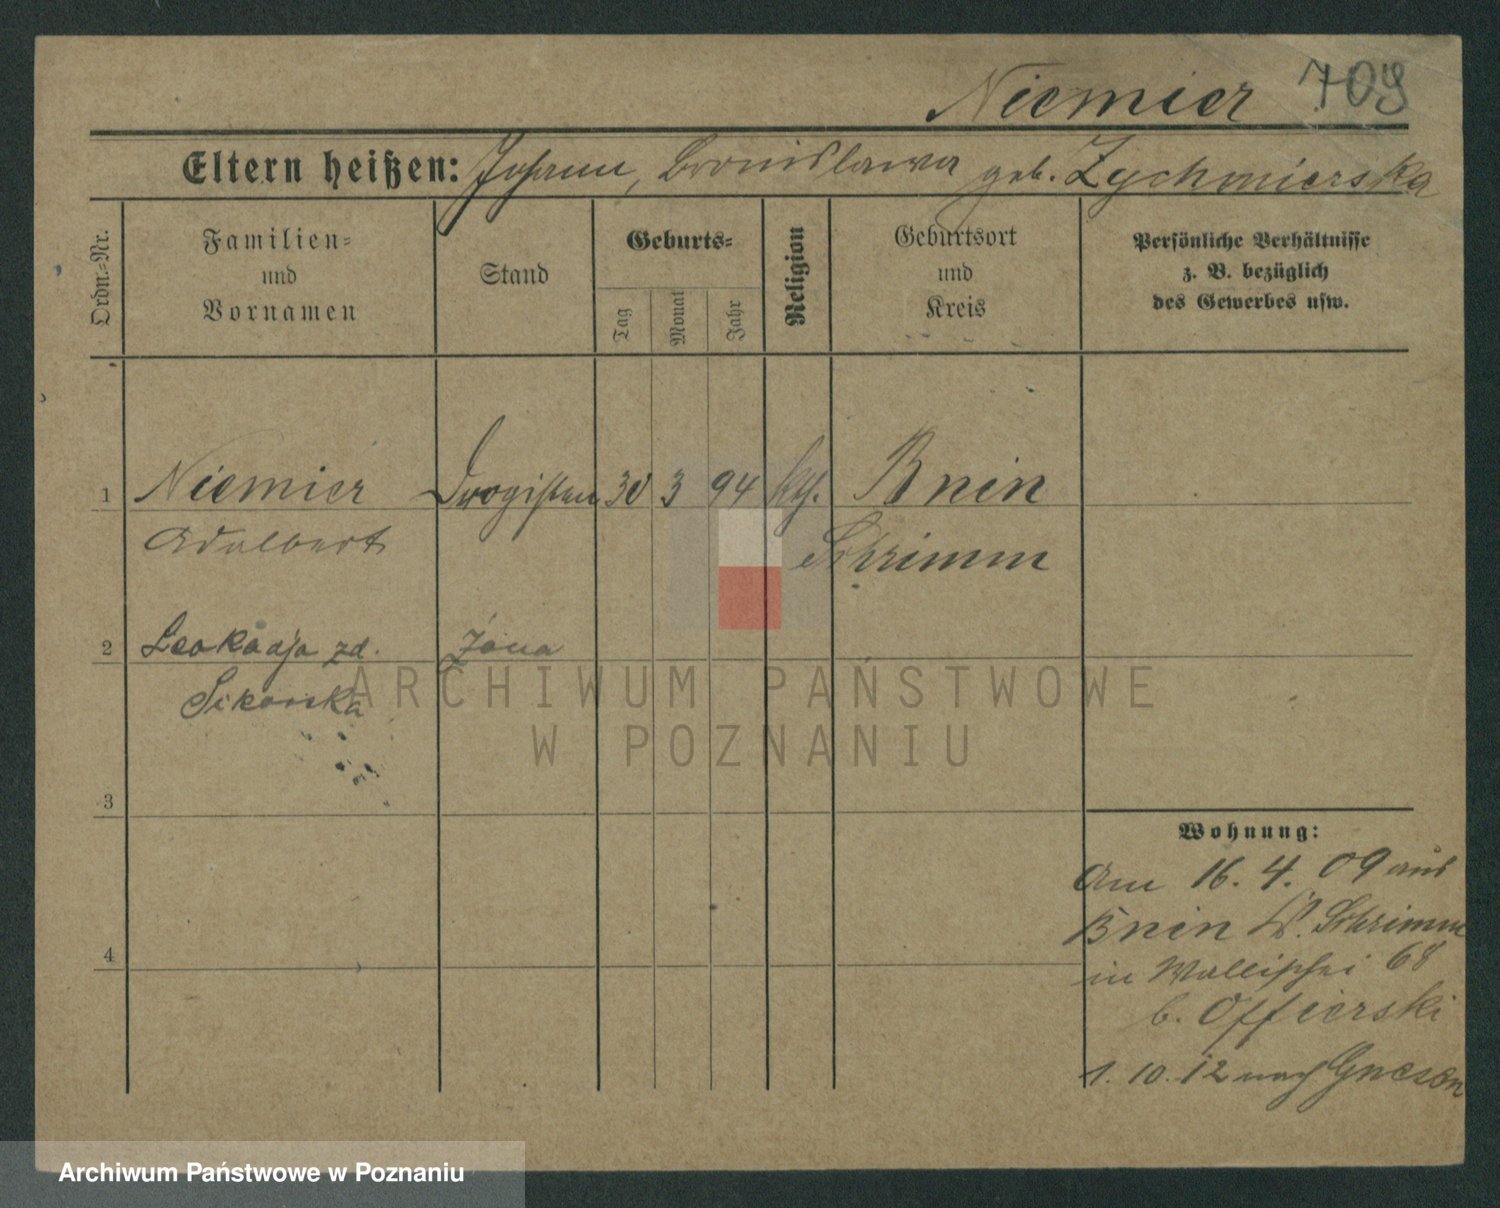 Niemier 709
Eltern heißen: Johann, Bronislawa geb. Zychmierska
Ordn.-Nr.
Familien-
und
Vornamen
Stand
Geburts-
Tag
Monat
Jahr
Religion
Geburtsort
und
Kreis
Persönliche Verhältnisse
z. B. bezüglich
des Gewerbes usw.
1 Niemier Drogisten 30 3 94 kth. Bnin
Adalbert Schrimm
2 Leokadja zd. żona
Sikorska
3
4
Wohnung:
Am 16. 4. 09 aus
Bnin Kr. Schrimm
in Wallischei 68
b. Offierski
1. 10. 12 nach Gnesen
ARCHIWUM PAŃSTWOWE
W POZNANIU
Archiwum Państwowe w Poznaniu